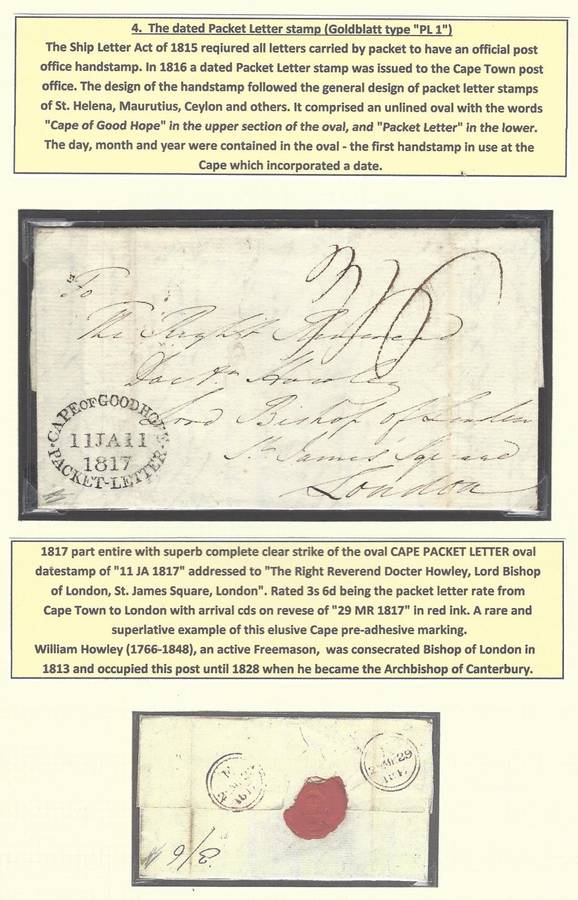 4. The dated Packet Letter stamp (Goldblatt type "PL 1")
The Ship Letter Act of 1815 reqiured all letters carried by packet to have an official post
office handstamp. In 1816 a dated Packet Letter stamp was issued to the Cape Town post
office. The design of the handstamp followed the general design of packet letter stamps
of St. Helena, Maurutius, Ceylon and others. It comprised an unlined oval with the words
"Cape of Good Hope" in the upper section of the oval, and "Packet Letter" in the lower.
The day, month and year were contained in the oval - the first handstamp in use at the
Cape which incorporated a date.
3/6
To
The Right Reverend
Doctr. Howley
Lord Bishop of London
St. James Square
London
CAPE OF GOOD HOPE
11JA11
1817
PACKET-LETTER
1817 part entire with superb complete clear strike of the oval CAPE PACKET LETTER oval
datestamp of "11 JA 1817" addressed to "The Right Reverend Docter Howley, Lord Bishop
of London, St. James Square, London". Rated 3s 6d being the packet letter rate from
Cape Town to London with arrival cds on revese of "29 MR 1817" in red ink. A rare and
superlative example of this elusive Cape pre-adhesive marking.
William Howley (1766-1848), an active Freemason, was consecrated Bishop of London in
1813 and occupied this post until 1828 when he became the Archbishop of Canterbury.
3/6